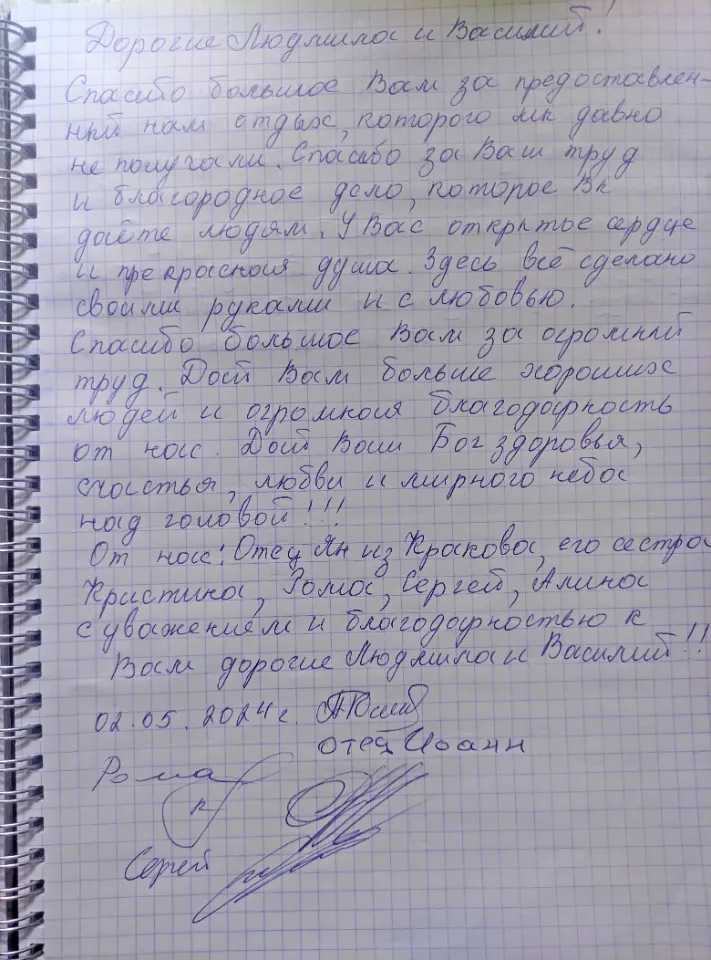 Дорогие Людмила и Василий!
Спасибо большое Вам за предоставлен-
ный нам отдых, которого мы давно
не получали. Спасибо за Ваш труд
и благородное дело, которое Вы
даёте людям. У Вас открытое сердце
и прекрасная душа. Здесь всё сделано
своими руками и с любовью.
Спасибо большое Вам за огромный
труд. Дай Вам больше хороших
людей и огромная благодарность
от нас. Дай Вам Бог здоровья,
счастья, любви и мирного неба
над головой!!!
От нас: Отец Ян из Кракова, его сестра
Кристина, Рома, Сергей, Алина
с уважением и благодарностью к
Вам дорогие Людмила и Василий!!
02.05.2024г.
отец Иоанн
Рома
Сергей